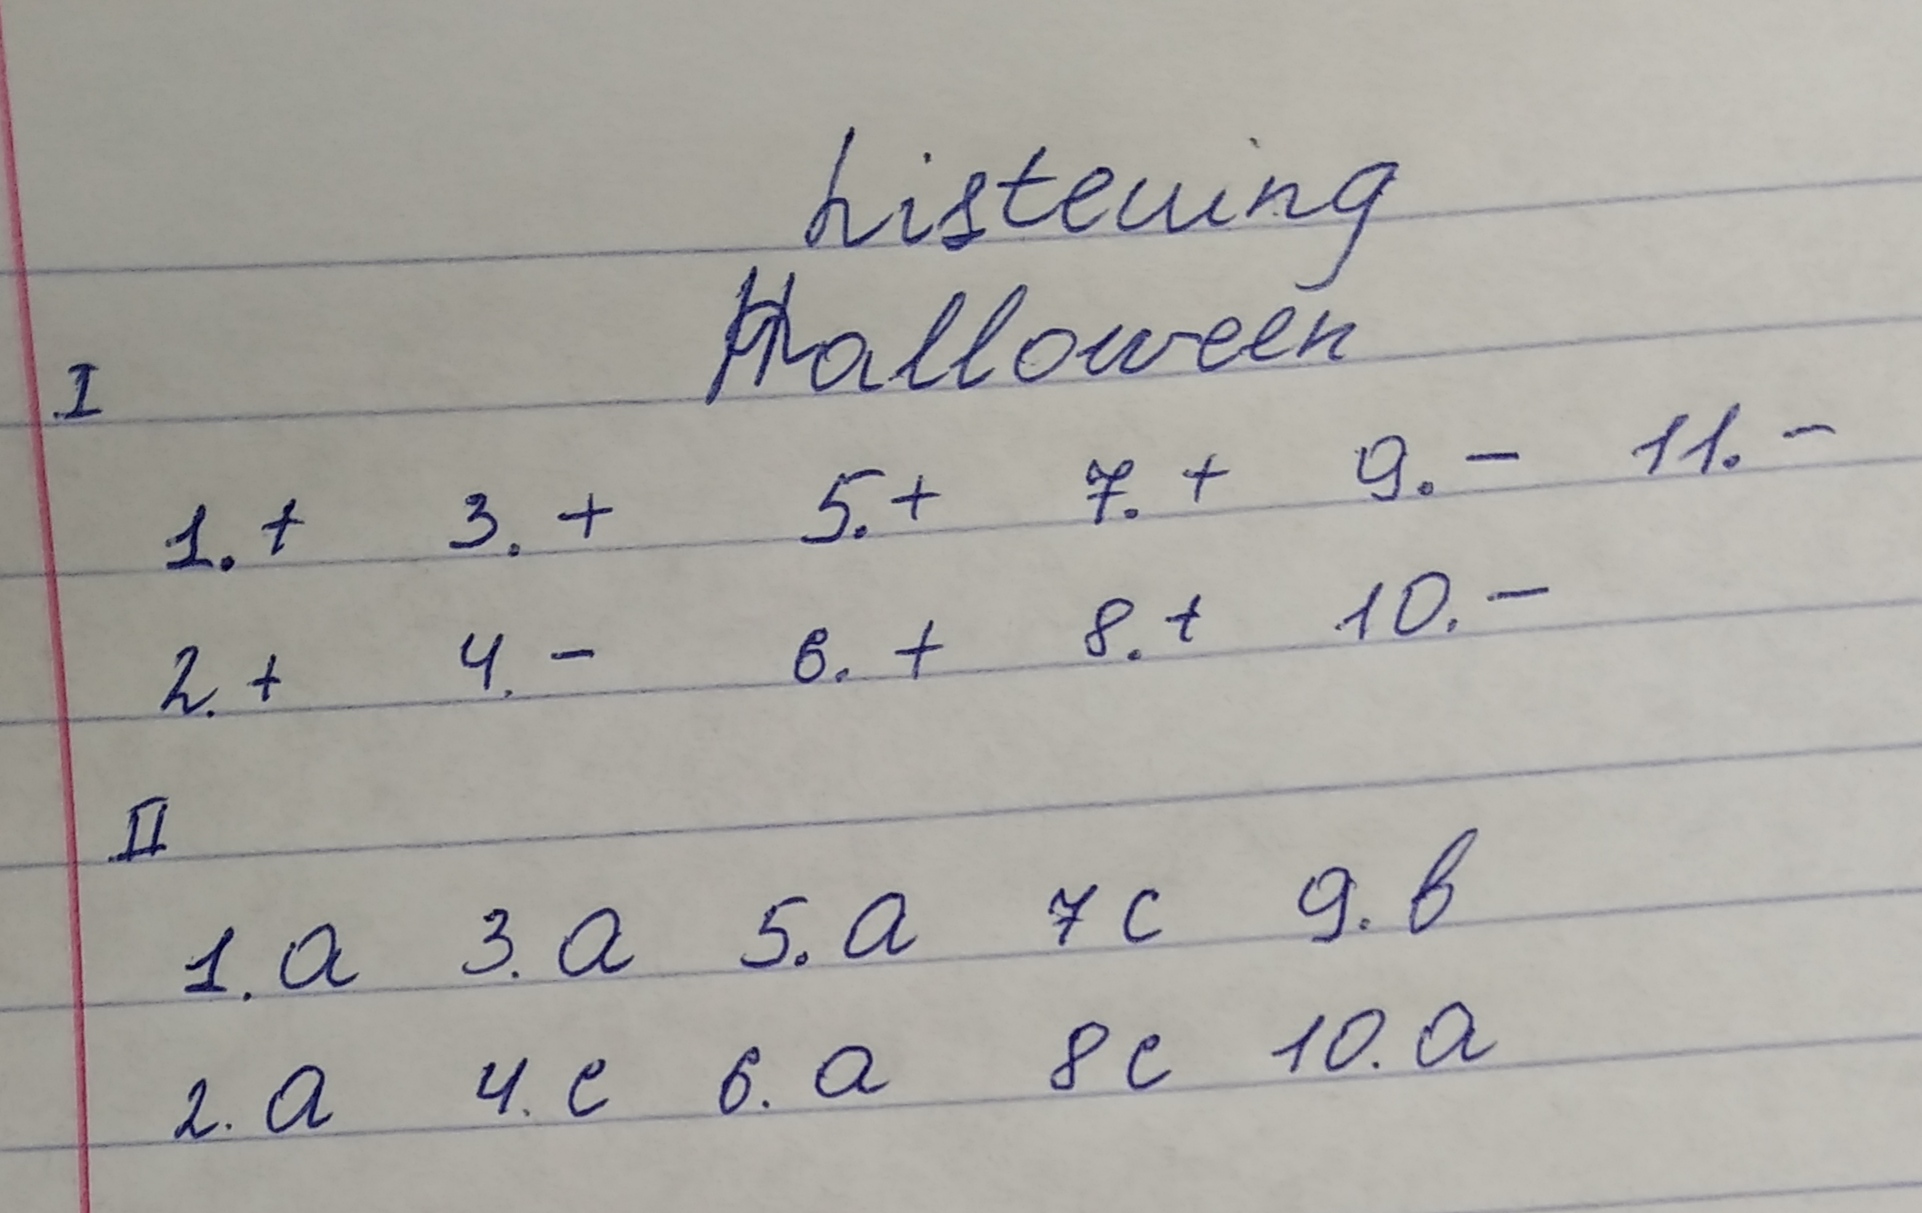 Listening
Halloween
I
1. + 3. + 5. + 7. + 9. - 11. -
2. + 4. - 6. + 8. + 10. -
II
1. a 3. a 5. a 7 c 9. b
2. a 4. c 6. a 8 c 10. a